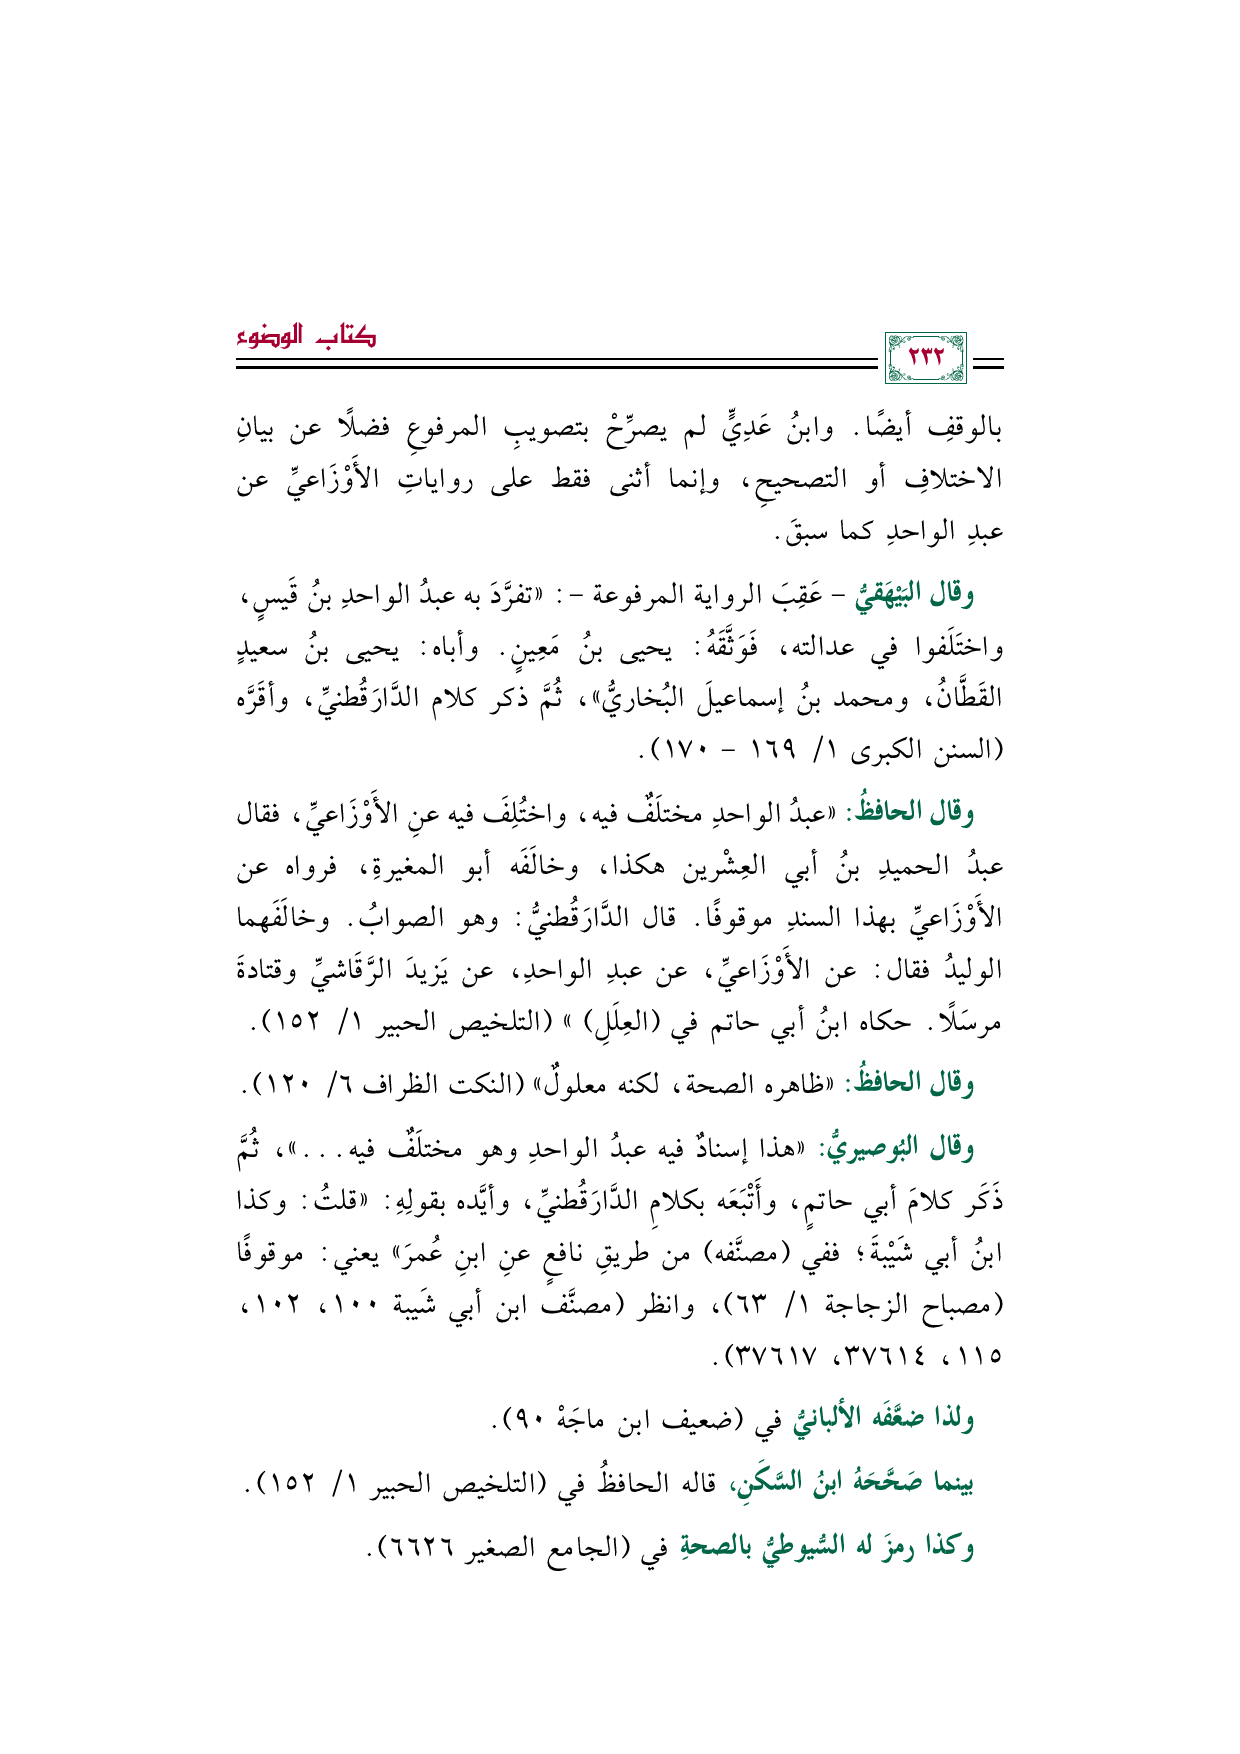 كتاب الوضوء
٢٣٢
بالوقفِ أيضًا. وابنُ عَدِيٍّ لم يصرِّحْ بتصويبِ المرفوعِ فضلًا عن بيانِ
الاختلافِ أو التصحيحِ، وإنما أثنى فقط على رواياتِ الأَوْزَاعيِّ عن
عبدِ الواحدِ كما سبقَ.
وقال البَيْهَقيُّ – عَقِبَ الرواية المرفوعة –: «تفرَّدَ به عبدُ الواحدِ بنُ قَيسٍ،
واختَلَفوا في عدالته، فَوَثَّقَهُ: يحيى بنُ مَعِينٍ. وأباه: يحيى بنُ سعيدٍ
القَطَّانُ، ومحمد بنُ إسماعيلَ البُخاريُّ»، ثُمَّ ذكر كلام الدَّارَقُطنيِّ، وأقَرَّه
(السنن الكبرى ١/ ١٦٩ – ١٧٠).
وقال الحافظُ: «عبدُ الواحدِ مختلَفٌ فيه، واختُلِفَ فيه عنِ الأَوْزَاعيِّ، فقال
عبدُ الحميدِ بنُ أبي العِشْرين هكذا، وخالَفَه أبو المغيرةِ، فرواه عن
الأَوْزَاعيِّ بهذا السندِ موقوفًا. قال الدَّارَقُطنيُّ: وهو الصوابُ. وخالَفَهما
الوليدُ فقال: عن الأَوْزَاعيِّ، عن عبدِ الواحدِ، عن يَزيدَ الرَّقَاشيِّ وقتادةَ
مرسَلًا. حكاه ابنُ أبي حاتم في (العِلَلِ) » (التلخيص الحبير ١/ ١٥٢).
وقال الحافظُ: «ظاهره الصحة، لكنه معلولٌ» (النكت الظراف ٦/ ١٢٠).
وقال البُوصيريُّ: «هذا إسنادٌ فيه عبدُ الواحدِ وهو مختلَفٌ فيه...»، ثُمَّ
ذَكَر كلامَ أبي حاتمٍ، وأَتْبَعَه بكلامِ الدَّارَقُطنيِّ، وأيَّده بقولِهِ: «قلتُ: وكذا
ابنُ أبي شَيْبةَ؛ ففي (مصنَّفه) من طريقِ نافعٍ عنِ ابنِ عُمرَ» يعني: موقوفًا
(مصباح الزجاجة ١/ ٦٣)، وانظر (مصنَّف ابن أبي شَيبة ١٠٠، ١٠٢،
١١٥، ٣٧٦١٤، ٣٧٦١٧).
ولذا ضعَّفَه الألبانيُّ في (ضعيف ابن ماجَهْ ٩٠).
بينما صَحَّحَهُ ابنُ السَّكَنِ، قاله الحافظُ في (التلخيص الحبير ١/ ١٥٢).
وكذا رمزَ له السُّيوطيُّ بالصحةِ في (الجامع الصغير ٦٦٢٦).